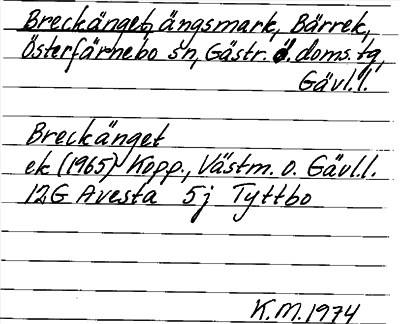 Breckänget, ängsmark, Bärrek,
Österfärnebo sn, Gästr. ö. doms. tg,
Gävl.l.
Breckänget
ek (1965) Kopp., Västm. o. Gävl.l.
12G Avesta 5j Tyttbo
K.M. 1974